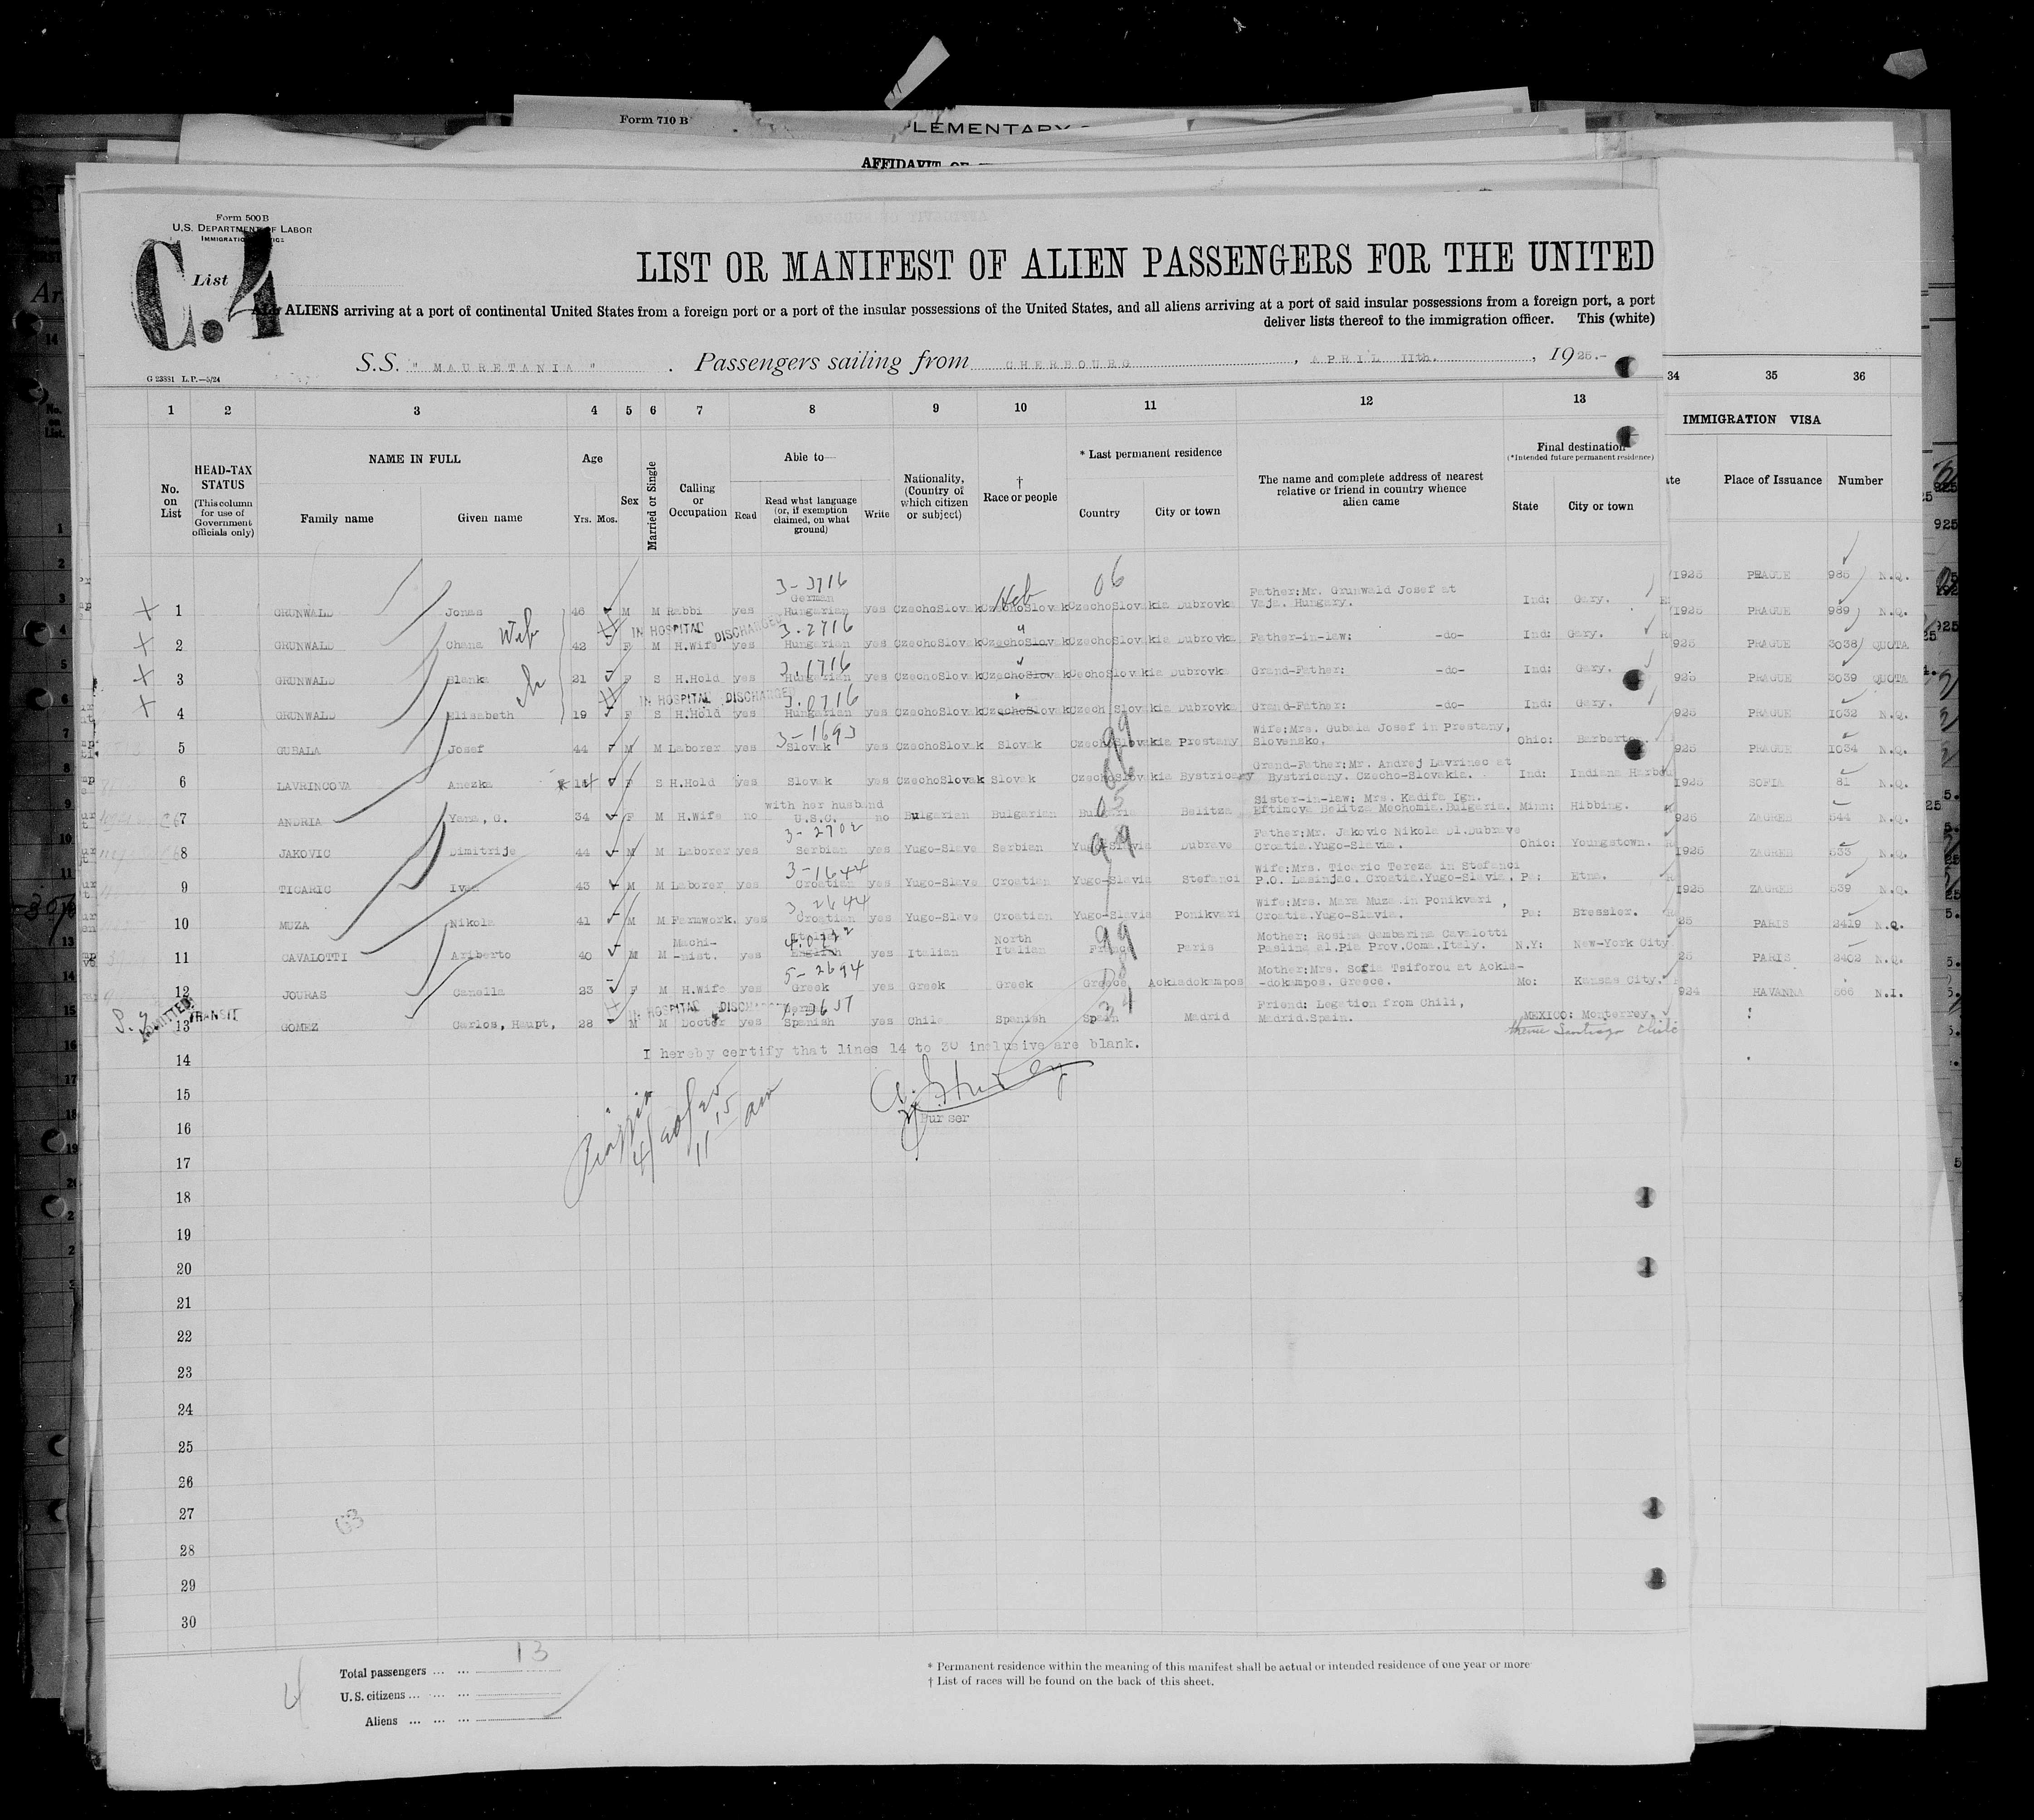 Form 710 B
LEMENTARY
AFFIDAVIT OF
Form 500 B
U.S. DEPARTMENT OF LABOR
IMMIGRATION SERVICE
List
C.4
LIST OR MANIFEST OF ALIEN PASSENGERS FOR THE UNITED
ALL ALIENS arriving at a port of continental United States from a foreign port or a port of the insular possessions of the United States, and all aliens arriving at a port of said insular possessions from a foreign port, a port
deliver lists thereof to the immigration officer. This (white)
S.S. " MAURETANIA " . Passengers sailing from CHERBOURG , APRIL 11th. , 1925.-
G 23881 L.P.—5/24
1 2 3 4 5 6 7 8 9 10 11 12 13 34 35 36
IMMIGRATION VISA
No. on List
HEAD-TAX STATUS
(This column for use of Government officials only)
NAME IN FULL
Family name Given name
Age
Yrs. Mos.
Sex
Married or Single
Calling or Occupation
Able to—
Read
Read what language (or, if exemption claimed, on what ground)
Write
Nationality, (Country of which citizen or subject)
† Race or people
* Last permanent residence
Country City or town
The name and complete address of nearest relative or friend in country whence alien came
Final destination
(*Intended future permanent residence)
State City or town
Place of Issuance Number
PRAGUE 985 N.Q.
3-3716 Heb 06
1 GRUNWALD Jonas 46 M M Rabbi yes German Hungarian yes CzechoSlovak CzechoSlovak CzechoSlovakia Dubrovka Father:Mr. Grunwald Josef at Vaja. Hungary. Ind: Gary. 1925 PRAGUE 989 N.Q.
IN HOSPITAL DISCHARGED 3-2716
2 GRUNWALD Chana 42 F M H.Wife yes Hungarian yes CzechoSlovak CzechoSlovak CzechoSlovakia Dubrovka Father-in-law: -do- Ind: Gary. 925 PRAGUE 3038 QUOTA
3-1716
3 GRUNWALD Blanka 21 F S H.Hold yes Hungarian yes CzechoSlovak CzechoSlovak CechoSlovakia Dubrovka Grand-Father: -do- Ind: Gary. 925 PRAGUE 3039 QUOTA
IN HOSPITAL DISCHARGED 3-0716
4 GRUNWALD Elisabeth 19 F S H.Hold yes Hungarian yes CzechoSlovak CzechoSlovak CzechoSlovakia Dubrovka Grand-Father: -do- Ind: Gary. 925 PRAGUE 1032 N.Q.
3-1693 99
5 GUBALA Josef 44 M M Laborer yes Slovak yes CzechoSlovak Slovak CzechoSlovakia Prestany Wife:Mrs. Gubala Josef in Prestany, Slovensko. Ohio: Barberton. 925 PRAGUE 1034 N.Q.
6 LAVRINCOVA Anezka 14 F S H.Hold yes Slovak yes CzechoSlovak Slovak CzechoSlovakia Bystricany Grand-Father:Mr. Andrej Lavrinec at Bystricany. Czecho-Slovakia. Ind: Indiana Harbor 1925 SOFIA 81 N.Q.
7 ANDRIA Yana, G. 34 F M H.Wife no with her husband U.S.C. no Bulgarian Bulgarian Bulgaria Belitza Sister-in-law: Mrs. Kadifa Ign. Eftimova Belitza Mechomia.Bulgaria. Minn: Hibbing. 925 ZAGREB 544 N.Q.
3-2702
8 JAKOVIC Dimitrije 44 M M Laborer yes Serbian yes Yugo-Slave Serbian Yugo-Slavia Dubrave Father:Mr. Jakovic Nikola Dl.Dubrave Croatia.Yugo-Slavia. Ohio: Youngstown. 1925 ZAGREB 533 N.Q.
3-1644
9 TICARIC Ivan 43 M M Laborer yes Croatian yes Yugo-Slave Croatian Yugo-Slavia Stefanci Wife:Mrs. Ticaric Tereza in Stefanci P.O. Lasinjac. Croatia.Yugo-Slavia. Pa: Etna. 1925 ZAGREB 539 N.Q.
3-2644
10 MUZA Nikola 41 M M Farmwork. yes Croatian yes Yugo-Slave Croatian Yugo-Slavia Ponikvari Wife:Mrs. Mara Muza.in Ponikvari , Croatia.Yugo-Slavia. Pa: Bressler. 25 PARIS 2419 N.Q.
99
11 CAVALOTTI Ariberto 40 M M Machi- -nist. yes English yes Italian North Italian France Paris Mother: Rosina Gambarina Cavalotti Paslina al.Pia Prov.Como.Italy. N.Y: New-York City 25 PARIS 2402 N.Q.
5-2694
12 JOURAS Canella 23 F M H.Wife yes Greek yes Greek Greek Greece Ackladokampos Mother:Mrs. Sofia Tsiforou at Ackla- -dokampos. Greece. Mo: Kansas City. 924 HAVANNA 566 N.I.
ADMITTED TRANSIT IN HOSPITAL DISCHARGED
13 GOMEZ Carlos, Haupt, 28 M M Doctor yes Spanish yes Chile Spanish Spain Madrid Friend: Legation from Chili, Madrid.Spain. MEXICO: Monterrey.
thence Santiago Chile
14 I hereby certify that lines 14 to 30 inclusive are blank.
15
16 Purser
4/20/25
11 15 am
17
18
19
20
21
22
23
24
25
26
27
28
29
30
4
Total passengers ... ... 13
U.S. citizens ... ... ...
Aliens ... ... ...
* Permanent residence within the meaning of this manifest shall be actual or intended residence of one year or more
† List of races will be found on the back of this sheet.